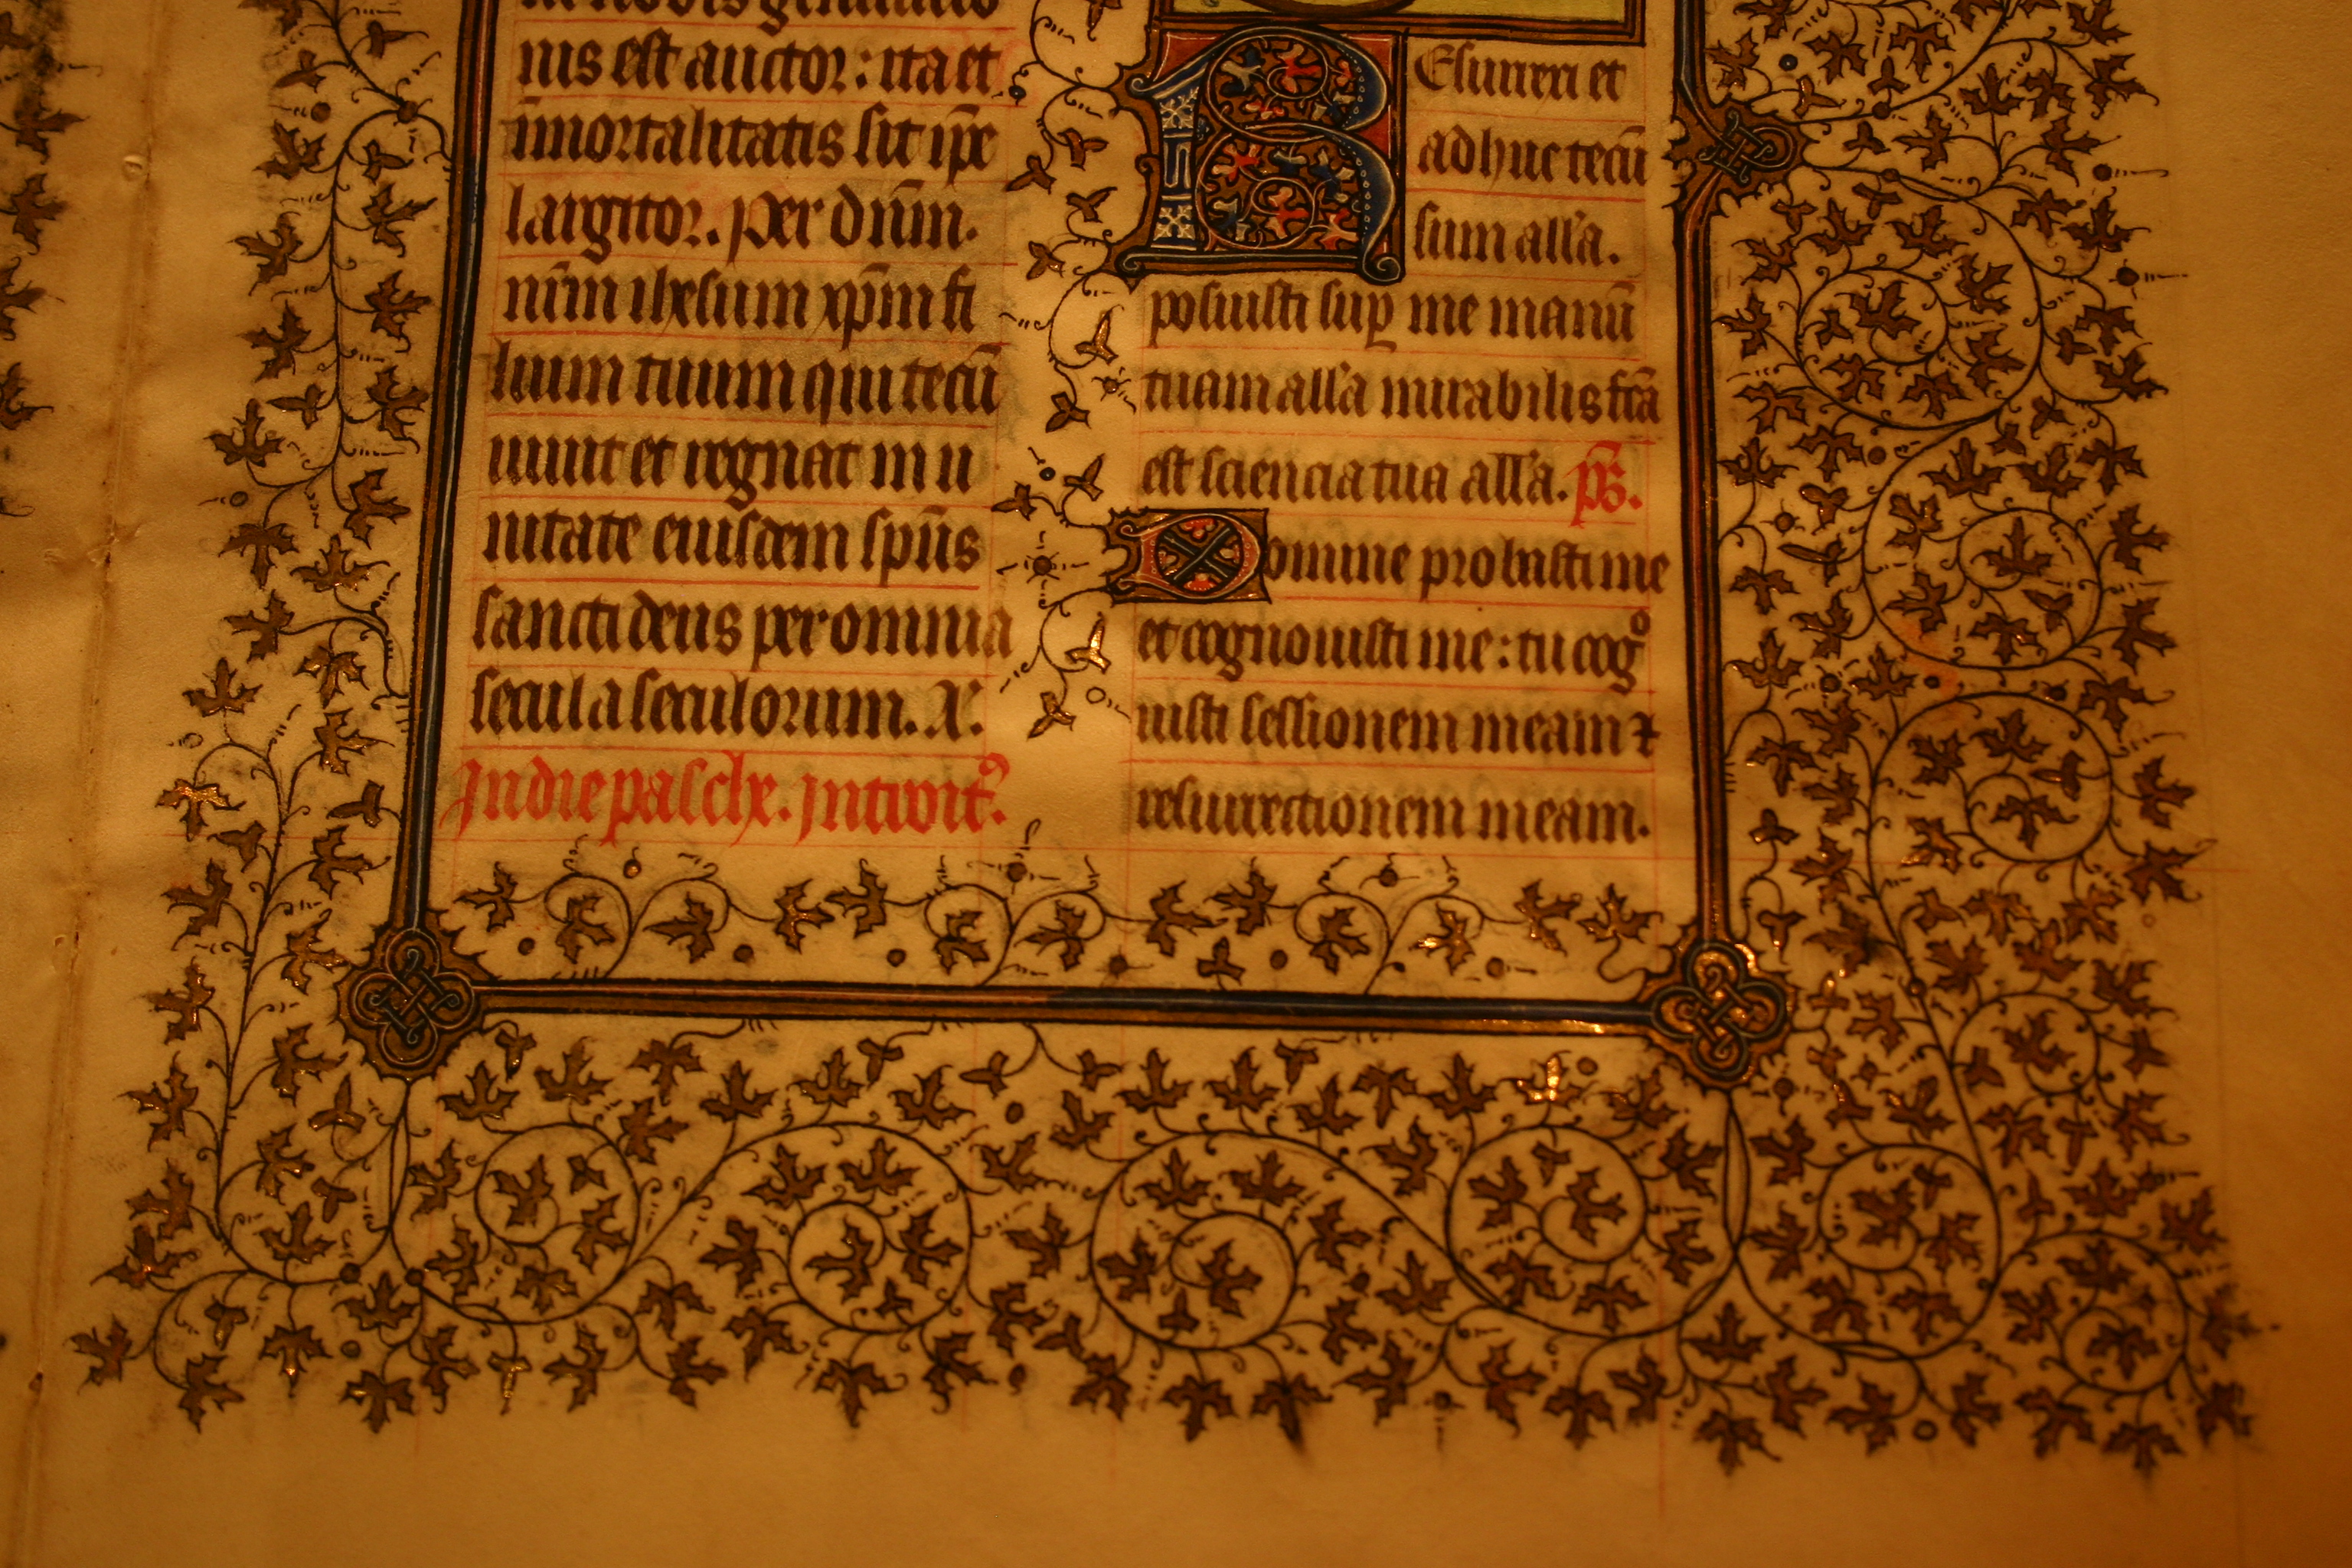 nis est auctor: ita et
īmortalitatis sit ip̄e
largitor. Per dn̄m.
nr̄m ihesum xp̄m fi
lium tuum qui tecū
uiuit et regnat in u
nitate eiusdem sp̄us
sancti deus per omnia
secula seculorum. A.
In die pasche. Introit᷒.
Resurrexi et
adhuc tecū
sum all'a.
posuisti suꝑ me manū
tuam all'a mirabilis fc̄a
est sciencia tua all'a. p̄s.
Domine probasti me
et cognouisti me: tu cogº
uisti sessionem meam ⁊
resurrectionem meam.